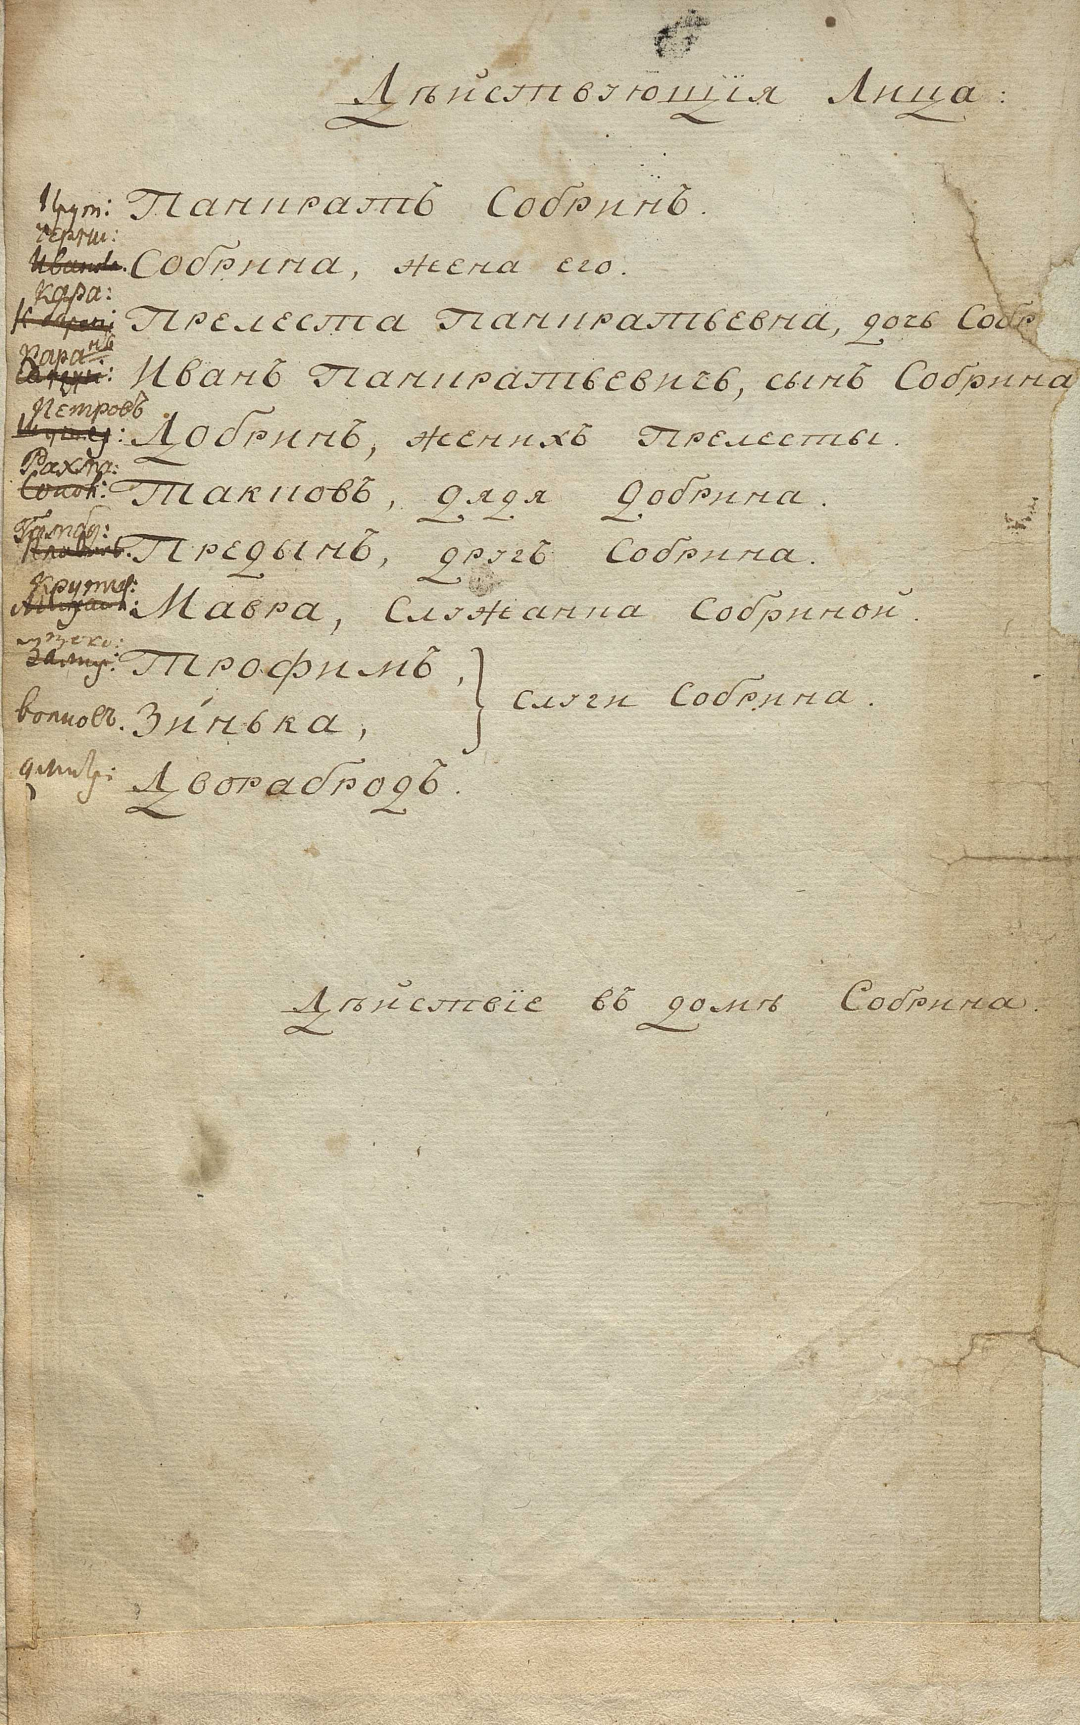 Дѣйствующія Лица:
Крут: Панкратъ Собринъ.
черни:
Собрина, жена его.
Кара:
Прелеста Панкратьевна, дочь Собр
Кара
Иванъ Панкратьевичь, сынъ Собрина
Петровъ
Добринъ, женихъ Прелесты.
Рахма:
Такновъ, дядя Добрина.
Гамбу:
Предынъ, другъ Собрина.
Крути:
Мавра, служанка Собриной.
Трофимъ, слуги Собрина.
волковъ. Зинька,
дмитр: Дворабродъ.
Дѣйствіе въ домѣ Собрина.